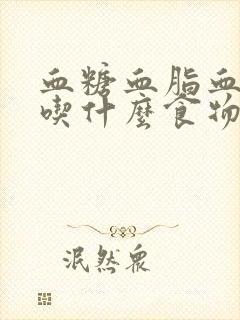 血糖血脂血
喫什麼食物
泯然眾